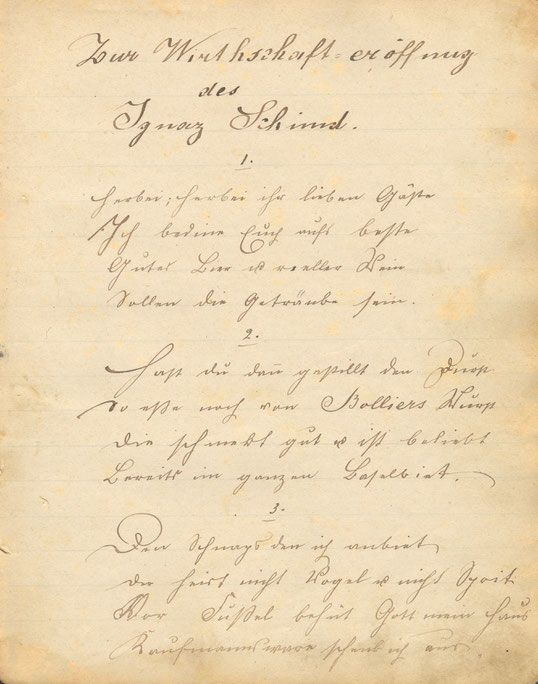 Zur Wirthschaft=eröffnung
des
Ignaz Schmid.
1.
Herbei, herbei ihr lieben Gäste
Ich bedine Euch aufs beste
Gutes Bier u reeller Wein
Sollen die Getränke sein.
2.
Hast du dan gestillt den Durst
So esse noch von Bolliers Wurst
Die schmekt gut u ist beliebt
Bereits im ganzen Baselbiet.
3.
Den Schnaps den ich anbiet
Der heist nicht Vogel u nicht
Vor Fussel behüt Gott mein Haus
Kaufmannsware schenk ich aus.